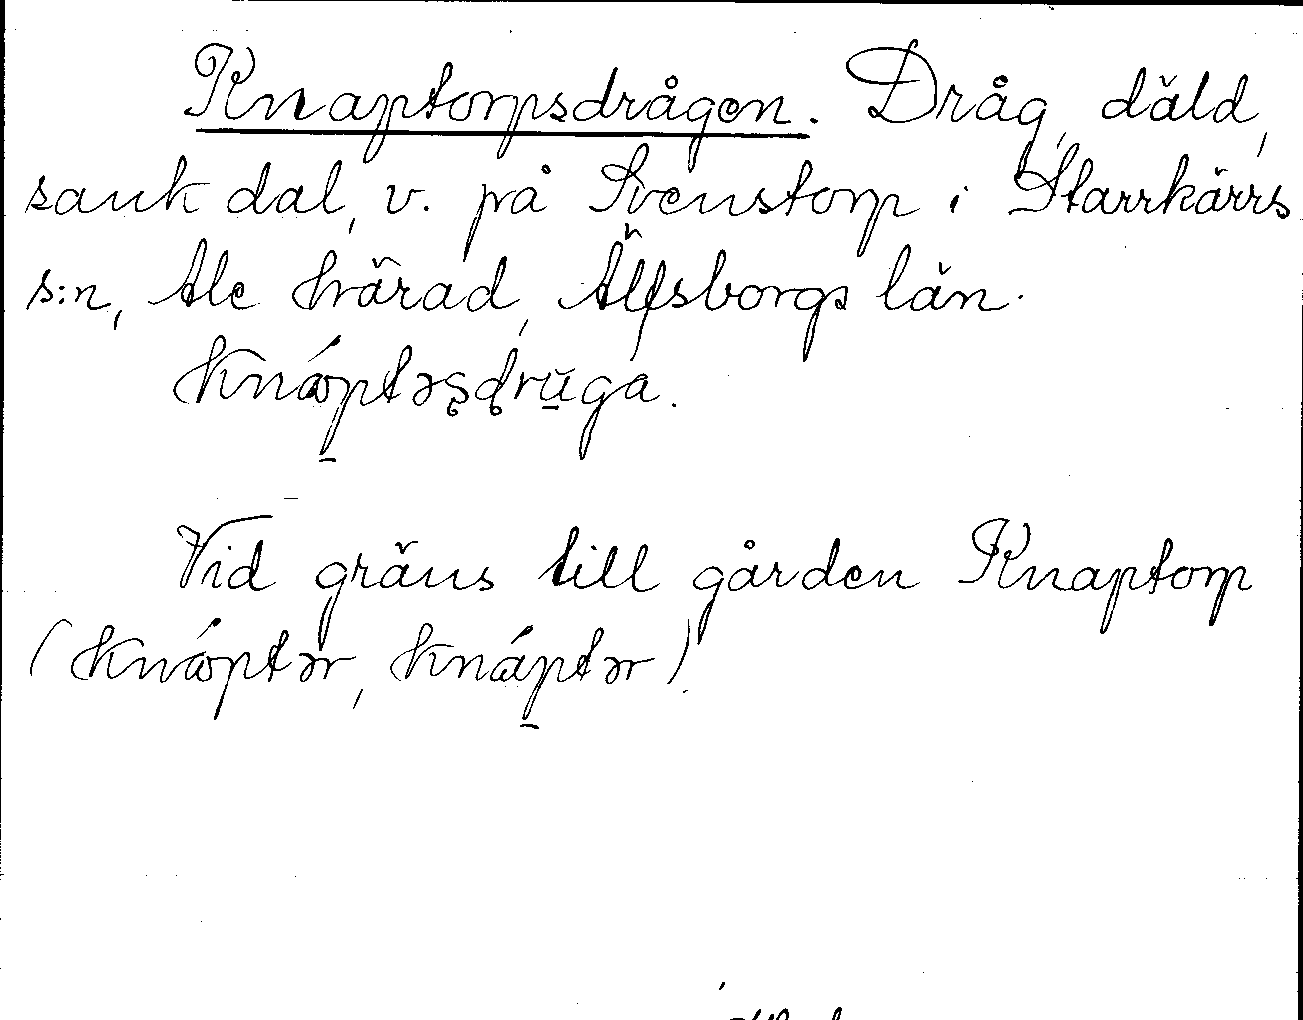 Knaptorpsdrågen. Dråg, däld,
sank dal, v. på Svenstorp i Starrkärrs
s:n, Ale härad, Älfsborgs län.
Knáptəșdrūga.
Vid gräns till gården Knaptorp
(Knáptər, Knáptər).